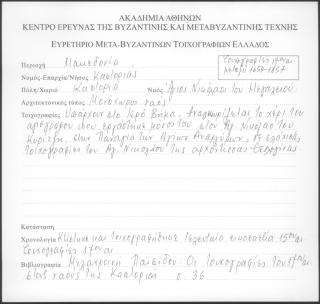 ΑΚΑΔΗΜΙΑ ΑΘΗΝΩΝ
ΚΕΝΤΡΟ ΕΡΕΥΝΑΣ ΤΗΣ ΒΥΖΑΝΤΙΝΗΣ ΚΑΙ ΜΕΤΑΒΥΖΑΝΤΙΝΗΣ ΤΕΧΝΗΣ
ΕΥΡΕΤΗΡΙΟ ΜΕΤΑ-ΒΥΖΑΝΤΙΝΩΝ ΤΟΙΧΟΓΡΑΦΙΩΝ ΕΛΛΑΔΟΣ
Περιοχή Μακεδονία
Τοιχογραφίες 17ου αι.
μεταξύ 1654-1657
Νομός-Επαρχία/Νήσος Καστοριάς
Πόλη/Χωριό Καστοριά Ναός Άγιος Νικόλαος του
Αρχιτεκτονικός τύπος Μονόχωρος ναός
Τοιχογραφίες Υπάρχουν στο Ιερό Βήμα. Αναγνωρίζεται το χέρι του
στον Αγ. Νικόλαο του
στην Παναγία των Αγίων Αναργύρων, σε
τοιχογραφίες του Αγ. Νικολάου της αρχόντισσας Θεολογίνας
Κατάσταση
Χρονολογία Κτίστηκε και τοιχογραφήθηκε τελευταία εικοσαετία 15ου αι
Τοιχογραφίες 17ου αι
Βιβλιογραφία Μελαχροινή Παϊσίδου: Οι τοιχογραφίες του 17ου αι.
στους ναούς της Καστοριάς σ. 36